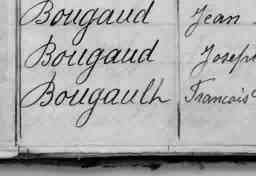 Bougaud Jean
Bougaud Joseph
Bougault Francois